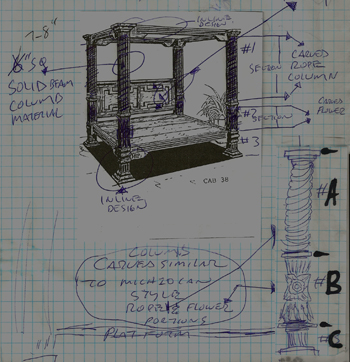 7-8"
6" SQ
SOLID BEAM
COLUMN
MATERIAL
INLINE
DESIGN
#1
SECTION
CARVED
ROPE
COLUMN
#2
SECTION
CARVED
FLOWER
#3
CAD 38
INLINE
DESIGN
#A
#B
#C
COLUMN
CARVED SIMILAR
TO MICHZOCAN
STYLE
ROPE & FLOWER
PORTIONS
PLATFORM